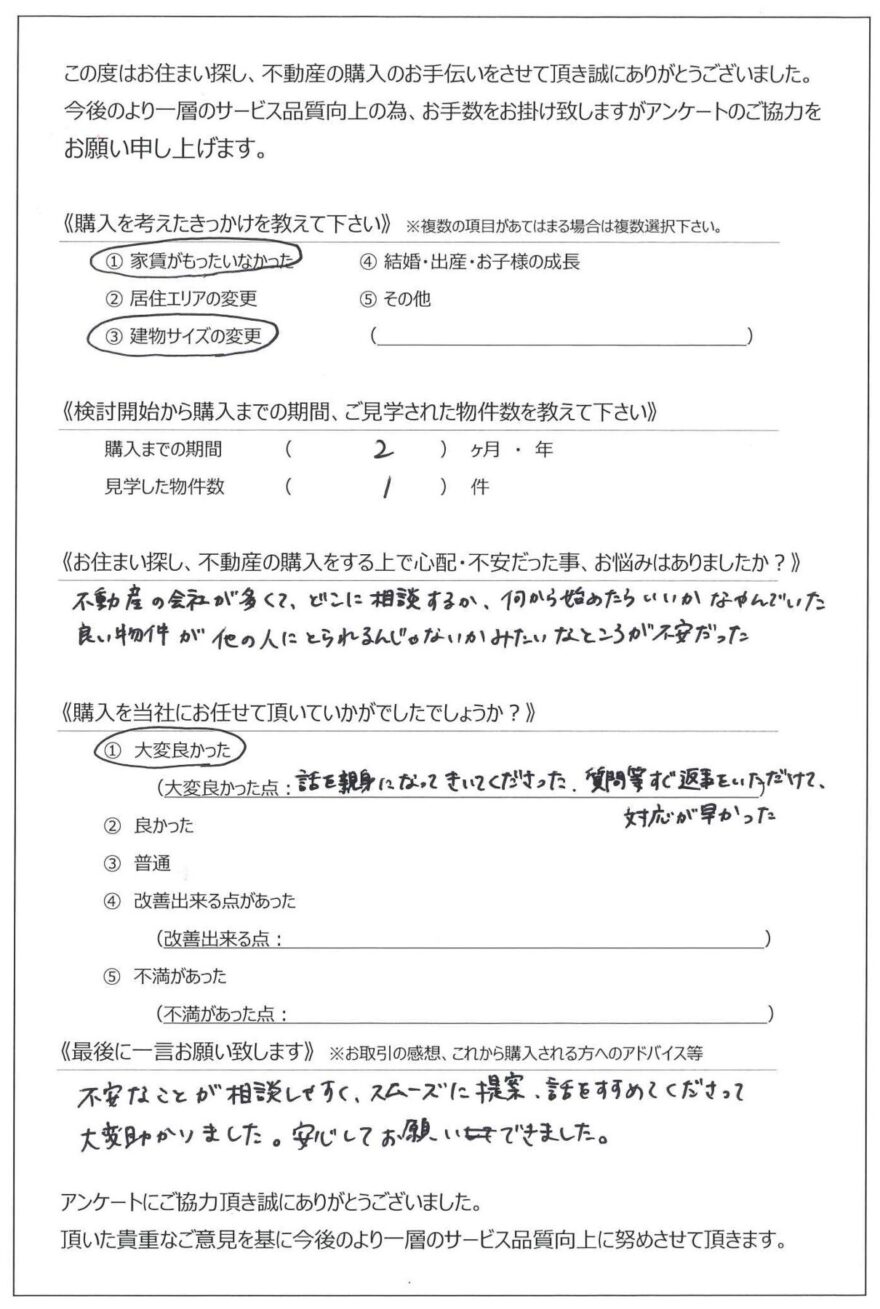 この度はお住まい探し、不動産の購入のお手伝いをさせて頂き誠にありがとうございました。
今後のより一層のサービス品質向上の為、お手数をお掛け致しますがアンケートのご協力を
お願い申し上げます。
《購入を考えたきっかけを教えて下さい》 ※複数の項目があてはまる場合は複数選択下さい。
① 家賃がもったいなかった ④ 結婚・出産・お子様の成長
② 居住エリアの変更 ⑤ その他
③ 建物サイズの変更 ( )
《検討開始から購入までの期間、ご見学された物件数を教えて下さい》
購入までの期間 ( 2 ) ヶ月 ・ 年
見学した物件数 ( 1 ) 件
《お住まい探し、不動産の購入をする上で心配・不安だった事、お悩みはありましたか?》
不動産の会社が多くて、どこに相談するか、何から始めたらいいかなやんでいた
良い物件が他の人にとられるんじゃないかみたいなところが不安だった
《購入を当社にお任せて頂いていかがでしたでしょうか?》
① 大変良かった
(大変良かった点:話を親身になってきいてくださった、質問等すぐ返事をいただけて、
対応が早かった
② 良かった
③ 普通
④ 改善出来る点があった
(改善出来る点: )
⑤ 不満があった
(不満があった点: )
《最後に一言お願い致します》 ※お取引の感想、これから購入される方へのアドバイス等
不安なことが相談しやすく、スムーズに提案、話をすすめてくださって
大変助かりました。安心してお願いできました。
アンケートにご協力頂き誠にありがとうございました。
頂いた貴重なご意見を基に今後のより一層のサービス品質向上に努めさせて頂きます。